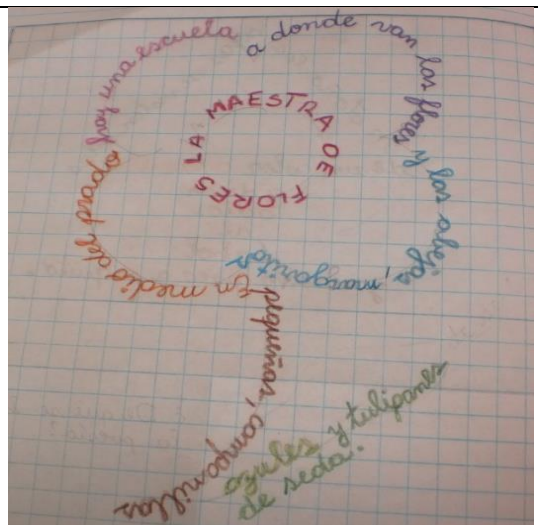 LA MAESTRA DE FLORES
En medio del prado
hay una escuela
a donde van las flores
y las abejas, margaritas
pequeñas, campanillas
azules y tulipanes
de seda.